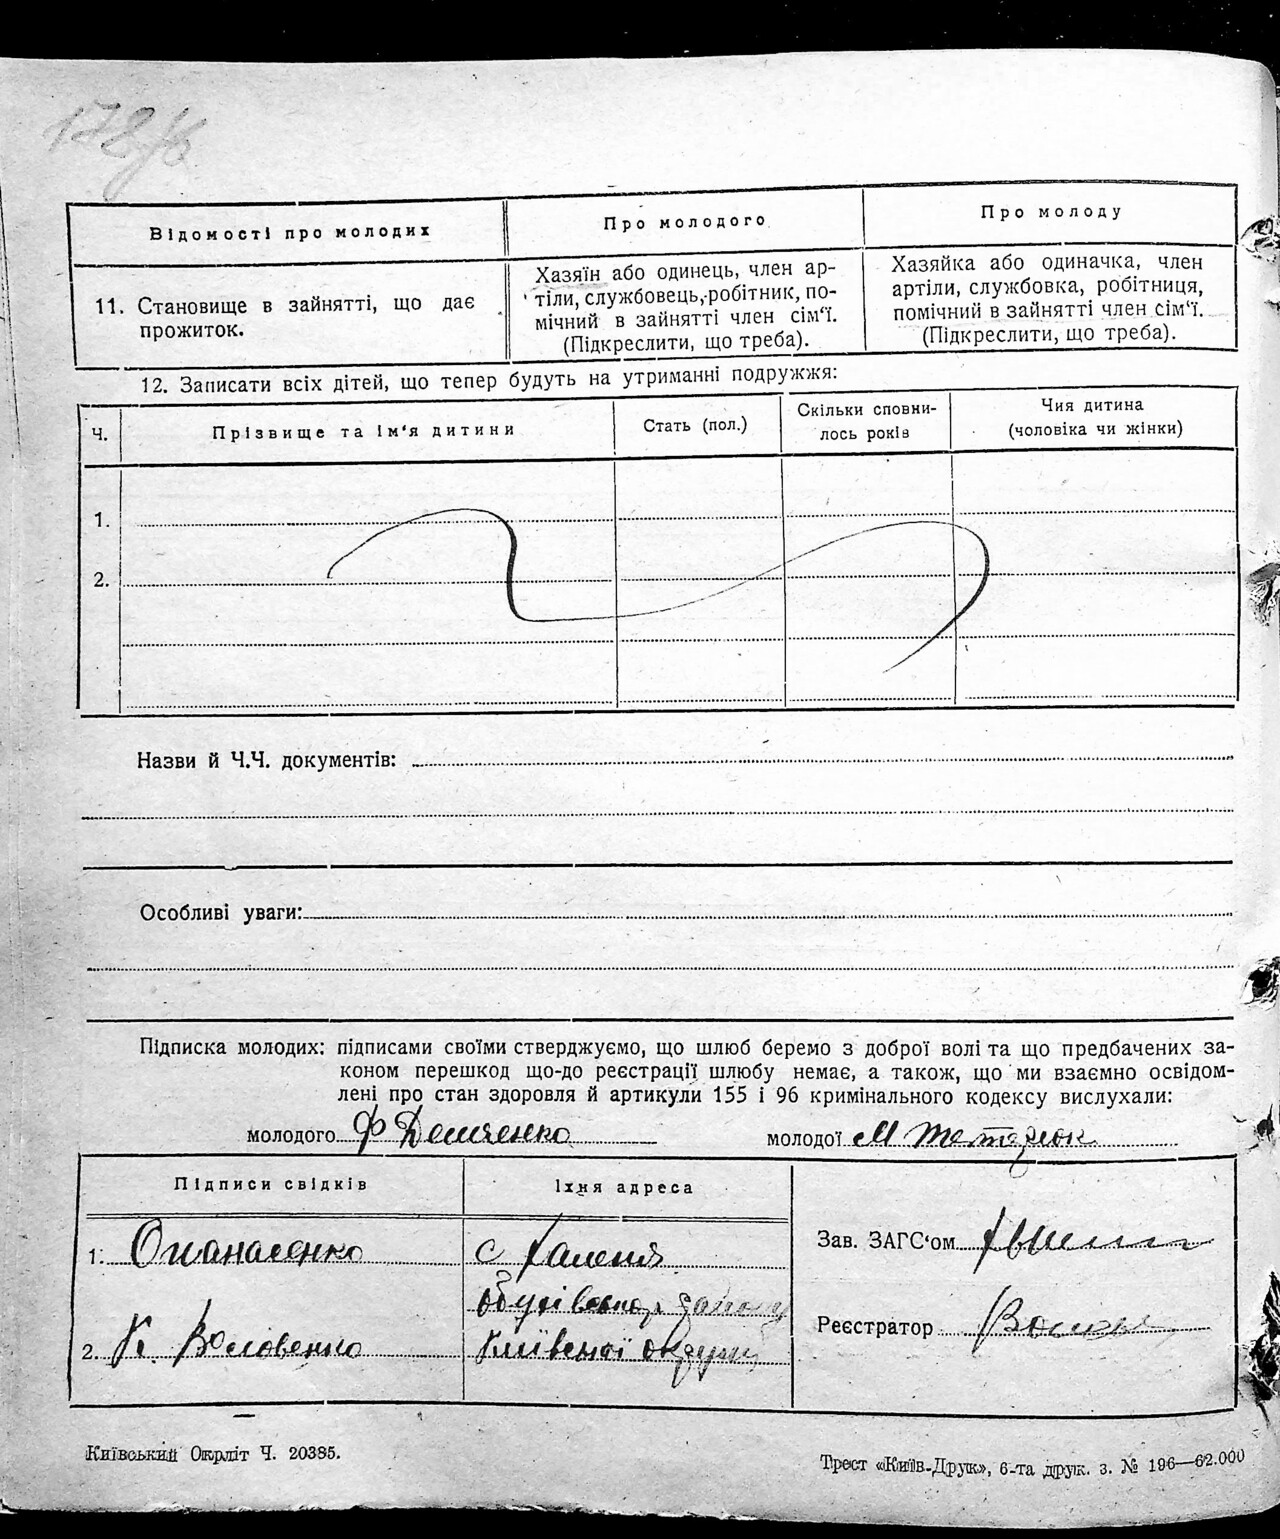 Відомості про молодих
Про молодого
Про молоду
11. Становище в зайнятті, що дає
прожиток.
Хазяїн або одинець, член ар-
тіли, службовець, робітник, по-
мічний в зайнятті член сім'ї.
(Підкреслити, що треба).
Хазяйка або одиначка, член
артіли, службовка, робітниця,
помічний в зайнятті член сім'ї.
(Підкреслити, що треба).
12. Записати всіх дітей, що тепер будуть на утриманні подружжя:
Ч.
Прізвище та ім'я дитини
Стать (пол.)
Скільки сповни-
лось років
Чия дитина
(чоловіка чи жінки)
1.
2.
Назви й Ч.Ч. документів:
Особливі уваги:
Підписка молодих: підписами своїми стверджуємо, що шлюб беремо з доброї волі та що предбачених за-
коном перешкод що-до реєстрації шлюбу немає, а також, що ми взаємно освідом-
лені про стан здоровля й артикули 155 і 96 кримінального кодексу вислухали:
молодого Ф Демченко
молодої М
Підписи свідків
Їхня адреса
1. Опанасенко
с
району
2. К. Воловенко
Київської округи
Зав. ЗАГС'ом
Реєстратор
Київський Окрліт Ч. 20385.
Трест «Київ-Друк», 6-та друк. з. № 196—62.000